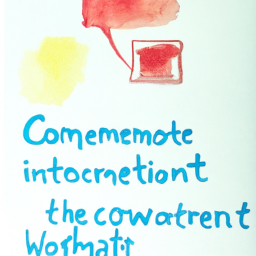 Comememote
intocrnetiont
the cowatrent
Woshatit